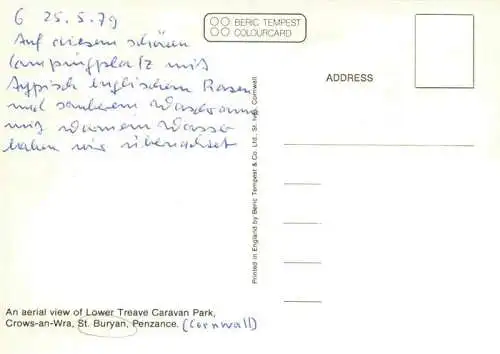 6 25.5.79
Auf diesem schönen
Campingplatz mit
typisch englischem Rasen
und sauberem Waschraum
mit warmem Wasser
haben wir übernachtet
BERIC TEMPEST
COLOURCARD
ADDRESS
Printed in England by Beric Tempest & Co. Ltd., St. Ives, Cornwall
An aerial view of Lower Treave Caravan Park,
Crows-an-Wra, St. Buryan, Penzance. (Cornwall)